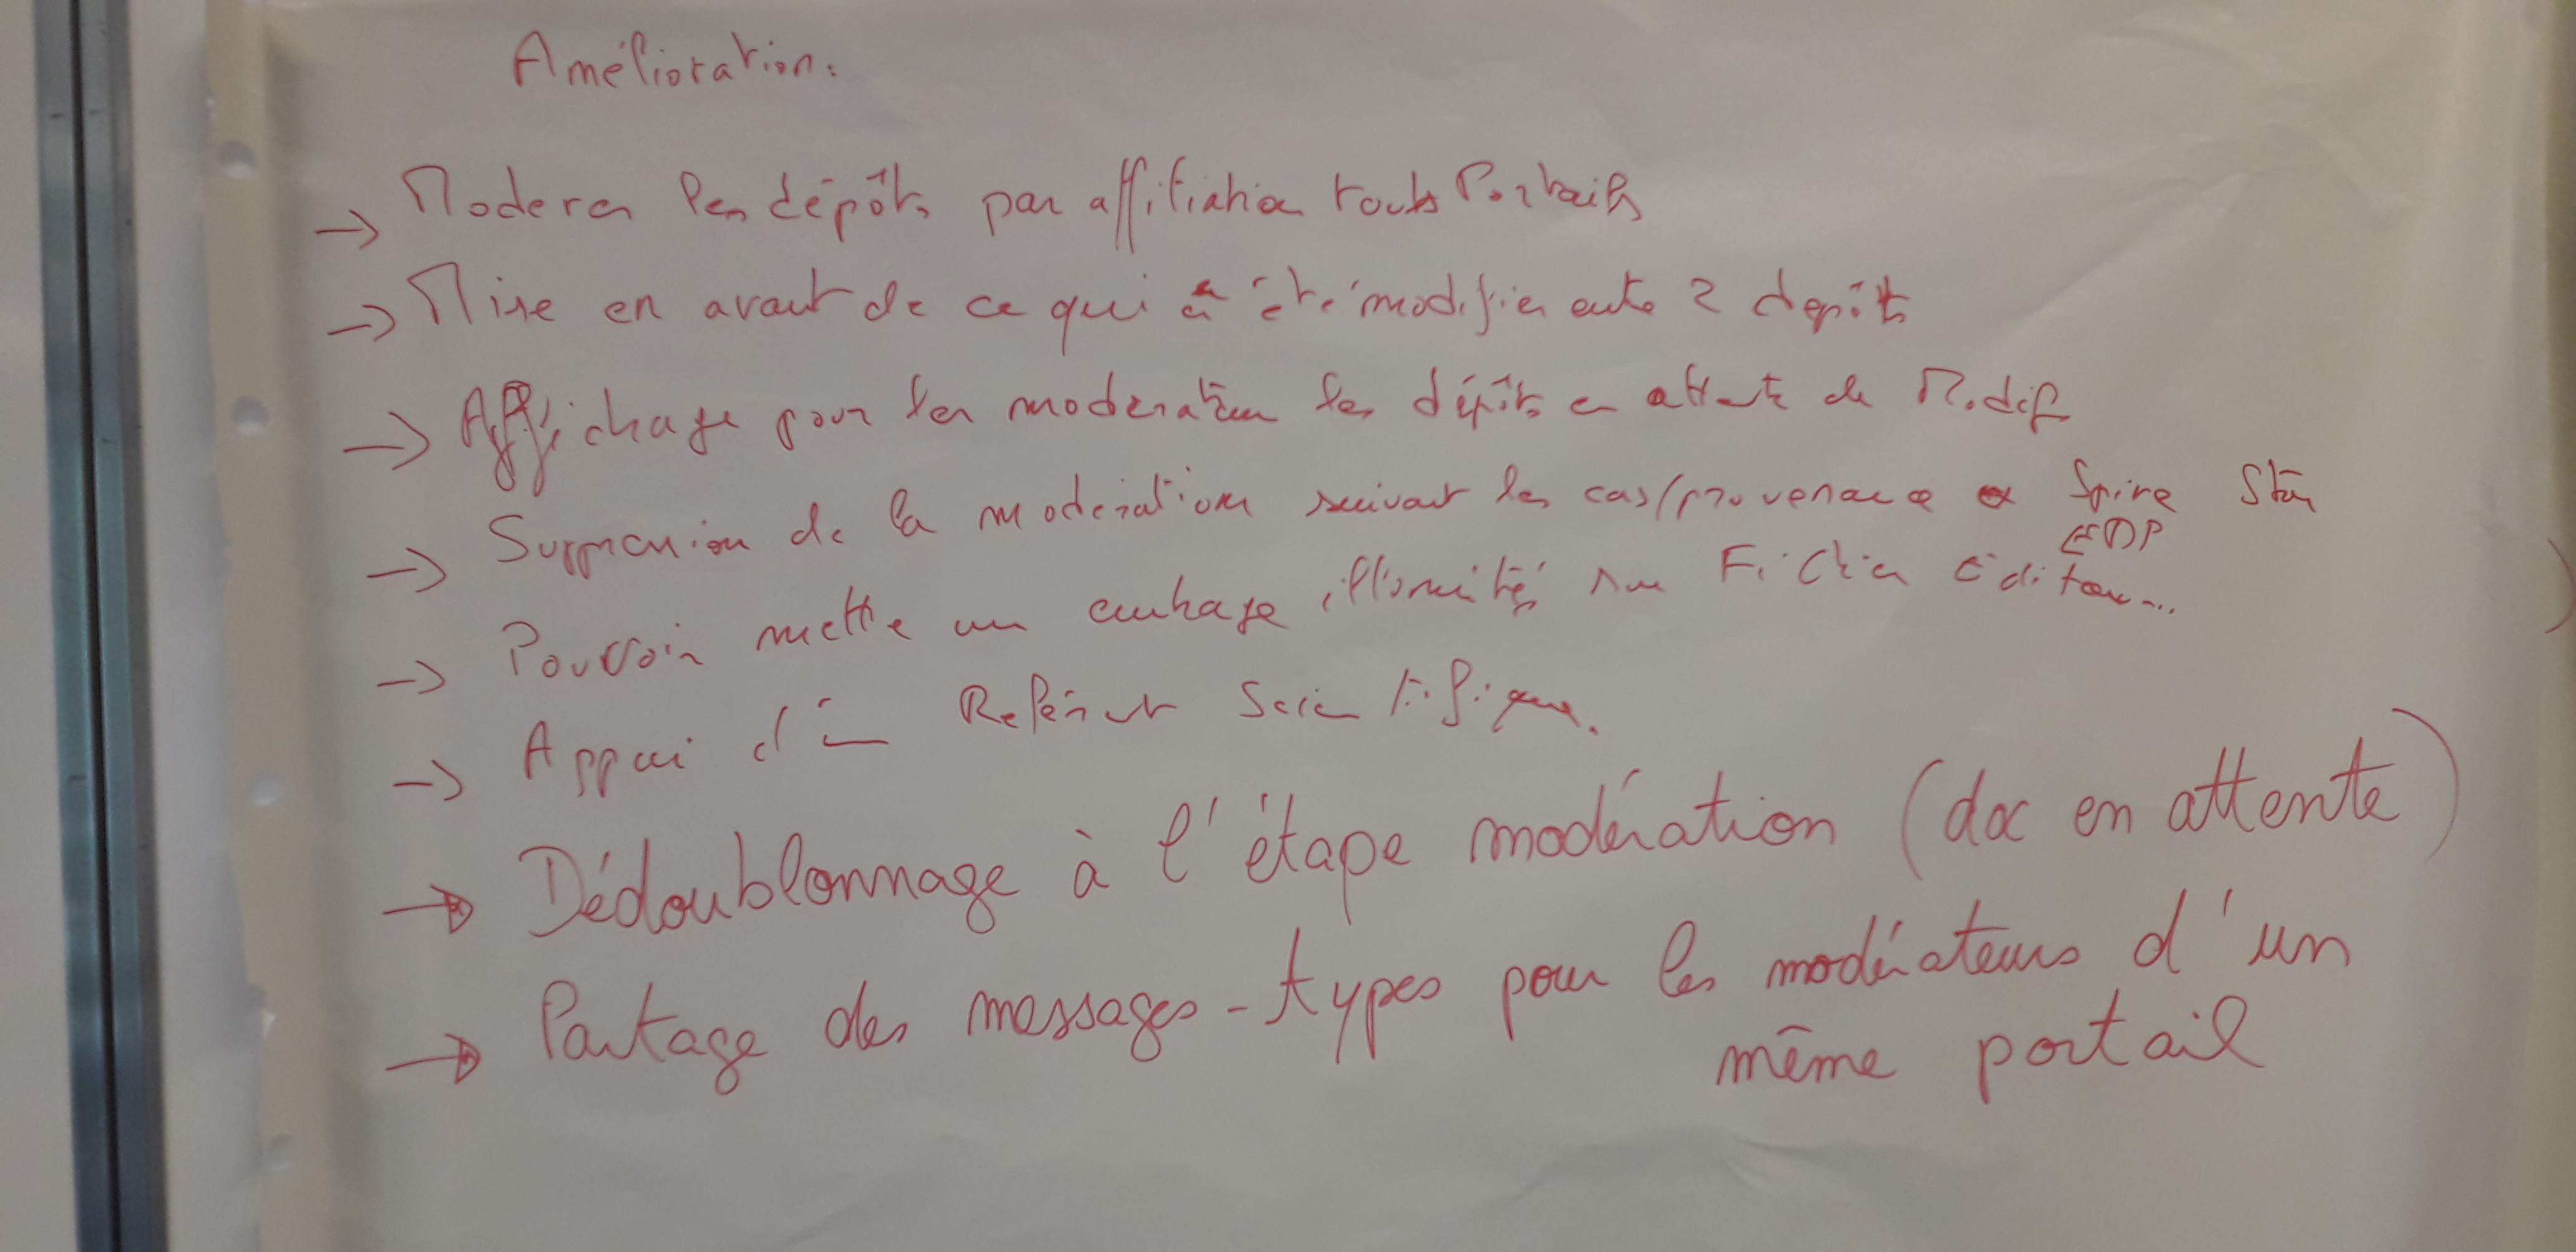 Amélioration:
→ Moderer les dépôts par affiliation touts Portails
→ Mise en avant de ce qui a été modifier entre 2 depôts
→ Affichage pour les moderateur les dépôts en attente de Modif
→ Suppression de la moderation suivant les cas/provenance ex Spire
EDP
→ Pouvoir mettre un embargo illimités sur Fichier éditeur...
→ Appui d'un Référent Scientifique.
→ Dédoublonnage à l'étape modération (doc en attente)
→ Partage des messages-types pour les modérateurs d'un
même portail